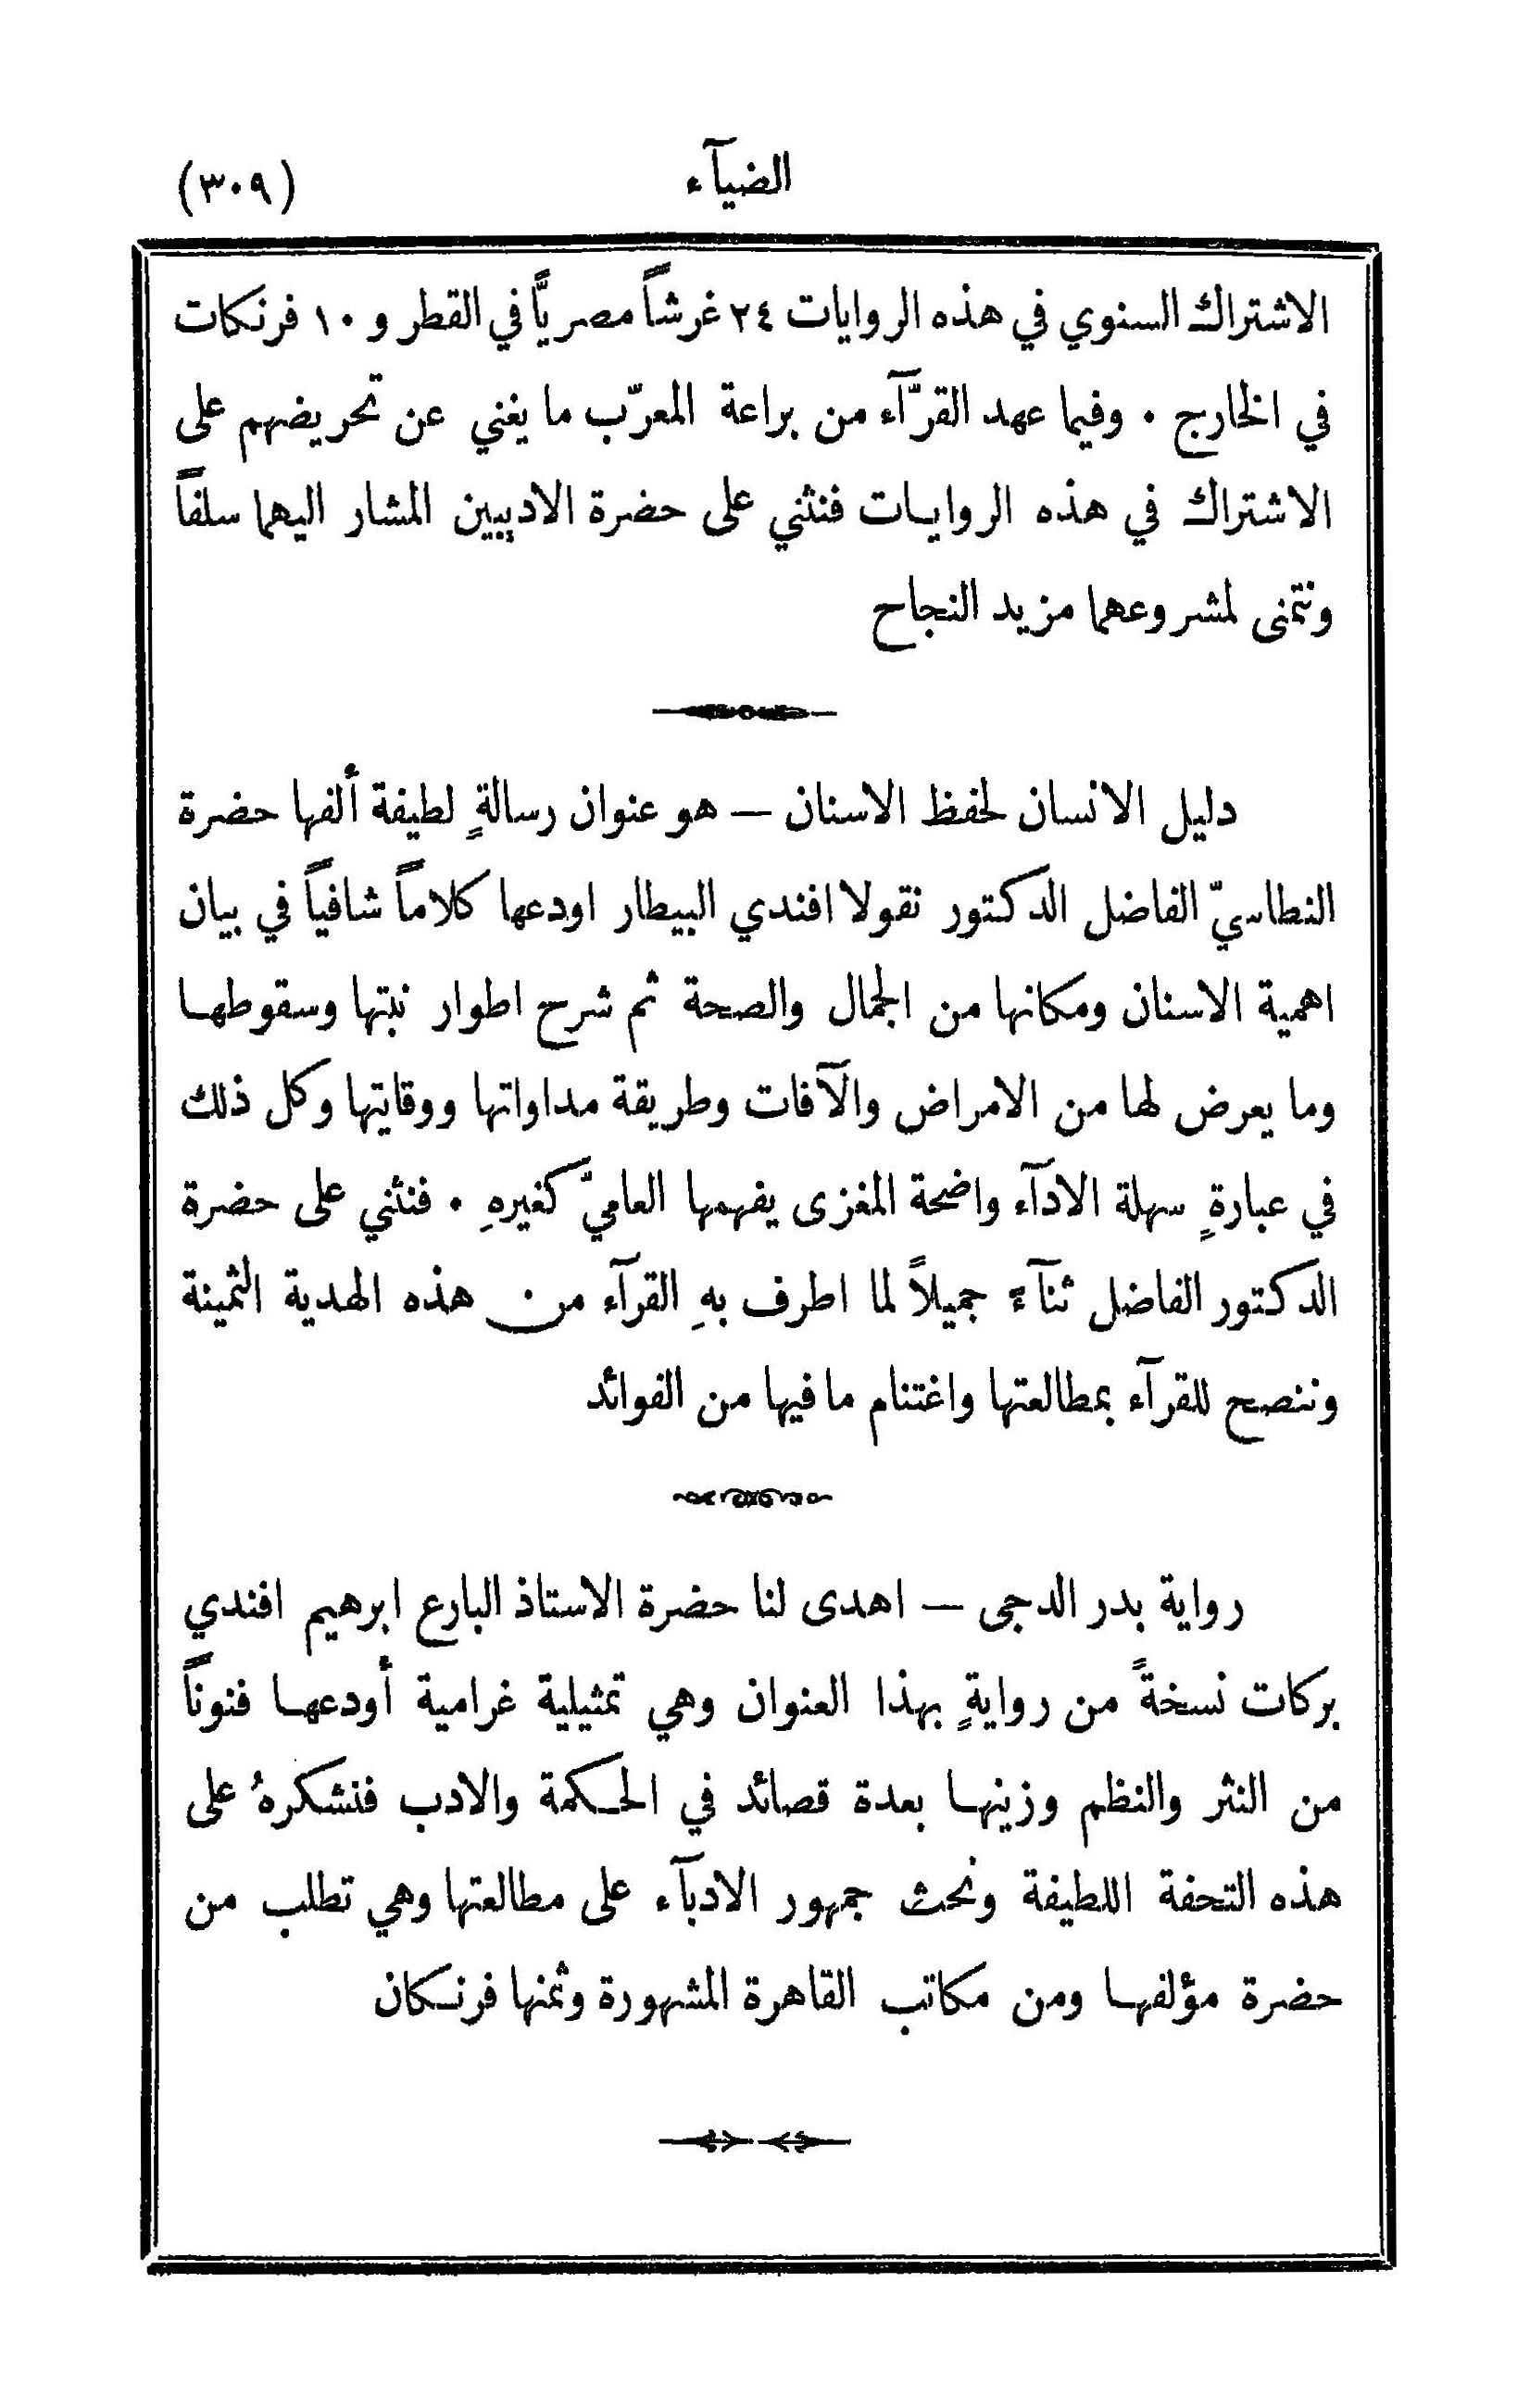 الضيآء
(٣٠٩)
الاشتراك السنوي في هذه الروايات ٢٤ غرشاً مصريًّا في القطر و ١٠ فرنكات
في الخارج ٠ وفيما عهد القرّآء من براعة المعرّب ما يغني عن تحريضهم على
الاشتراك في هذه الروايات فنثني على حضرة الاديبين المشار اليهما سلفاً
ونتمنى لمشروعهما مزيد النجاح
دليل الانسان لحفظ الاسنان — هو عنوان رسالةٍ لطيفة ألفها حضرة
النطاسيّ الفاضل الدكتور نقولا افندي البيطار اودعها كلاماً شافياً في بيان
اهمية الاسنان ومكانها من الجمال والصحة ثم شرح اطوار نبتها وسقوطها
وما يعرض لها من الامراض والآفات وطريقة مداواتها ووقايتها وكل ذلك
في عبارةٍ سهلة الادآء واضحة المغزى يفهمها العاميّ كغيرهِ ٠ فنثني على حضرة
الدكتور الفاضل ثنآءً جميلاً لما اطرف بهِ القرآء من هذه الهدية الثمينة
وننصح للقرآء بمطالعتها واغتنام ما فيها من الفوائد
رواية بدر الدجى — اهدى لنا حضرة الاستاذ البارع ابرهيم افندي
بركات نسخةً من روايةٍ بهذا العنوان وهي تمثيلية غرامية أودعها فنوناً
من النثر والنظم وزينها بعدة قصائد في الحكمة والادب فنشكرهُ على
هذه التحفة اللطيفة ونحث جمهور الادبآء على مطالعتها وهي تطلب من
حضرة مؤلفها ومن مكاتب القاهرة المشهورة وثمنها فرنكان